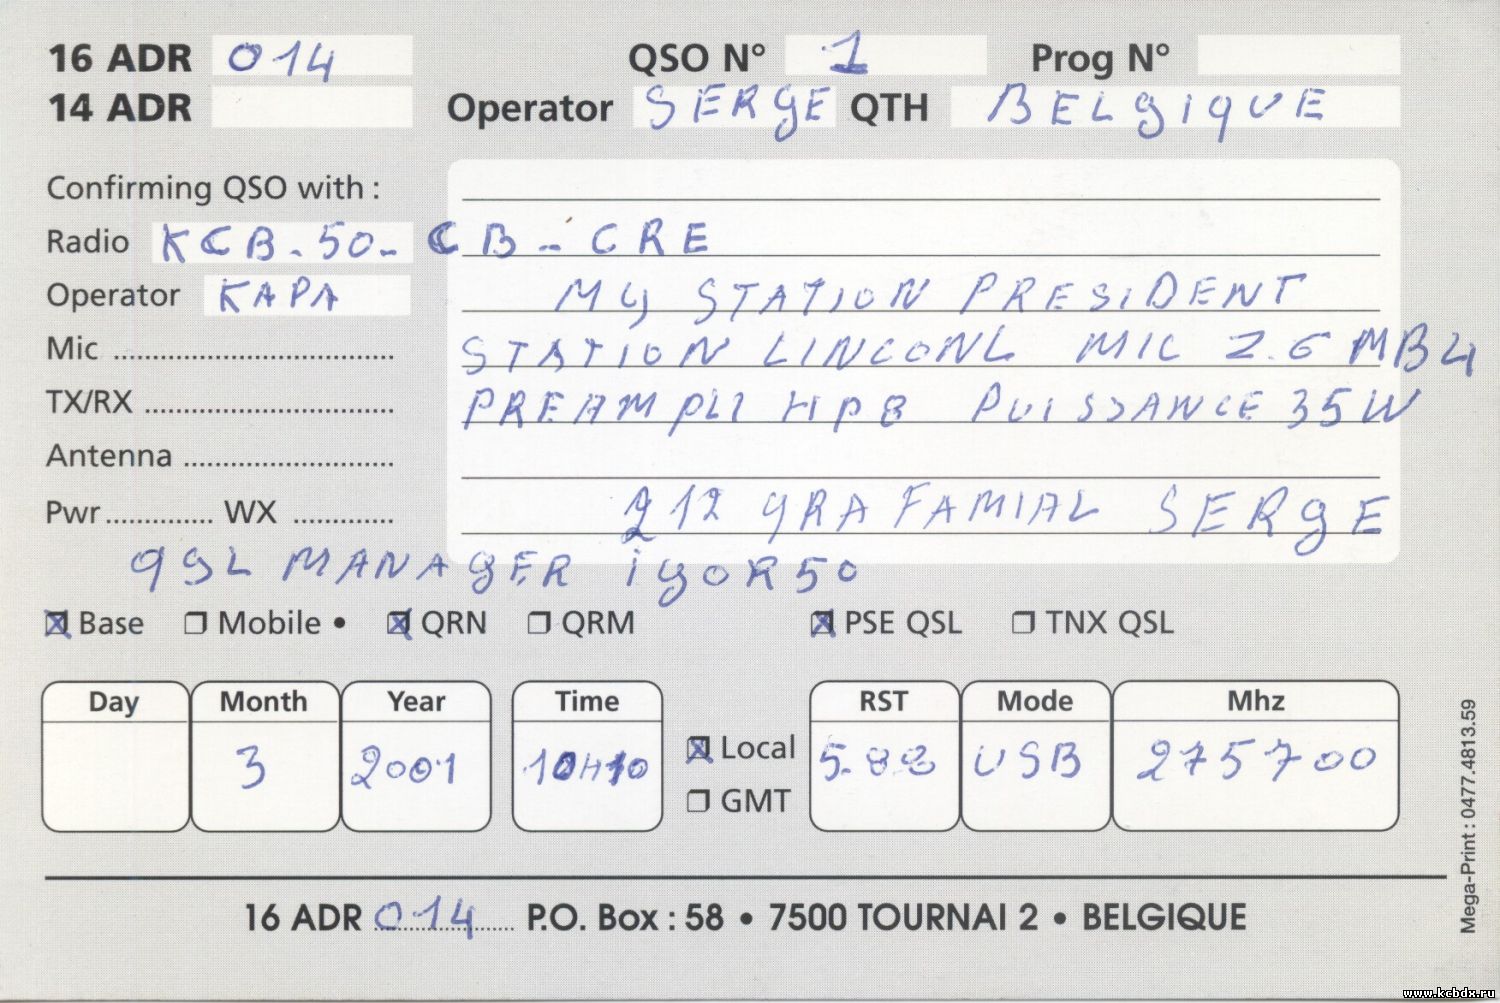 16 ADR 014 QSO N° 1 Prog N°
14 ADR Operator SERGE QTH BELGIQUE
Confirming QSO with :
Radio KCB.50-CB-CRE
Operator KAPA MY STATION PRESIDENT
Mic STATION LINCONL MIC Z.G MB4
TX/RX PREAMPLI HP8 PUISSANCE 35W
Antenna
Pwr WX 212 GRA FAMIAL SERGE
QSL MANAGER iGOR50
Base Mobile • QRN QRM PSE QSL TNX QSL
Day Month Year Time RST Mode Mhz
3 2001 10H10 Local 5.88 USB 275700
GMT
16 ADR 014 P.O. Box : 58 • 7500 TOURNAI 2 • BELGIQUE
Mega-Print : 0477.4813.59
www.kcbdx.ru